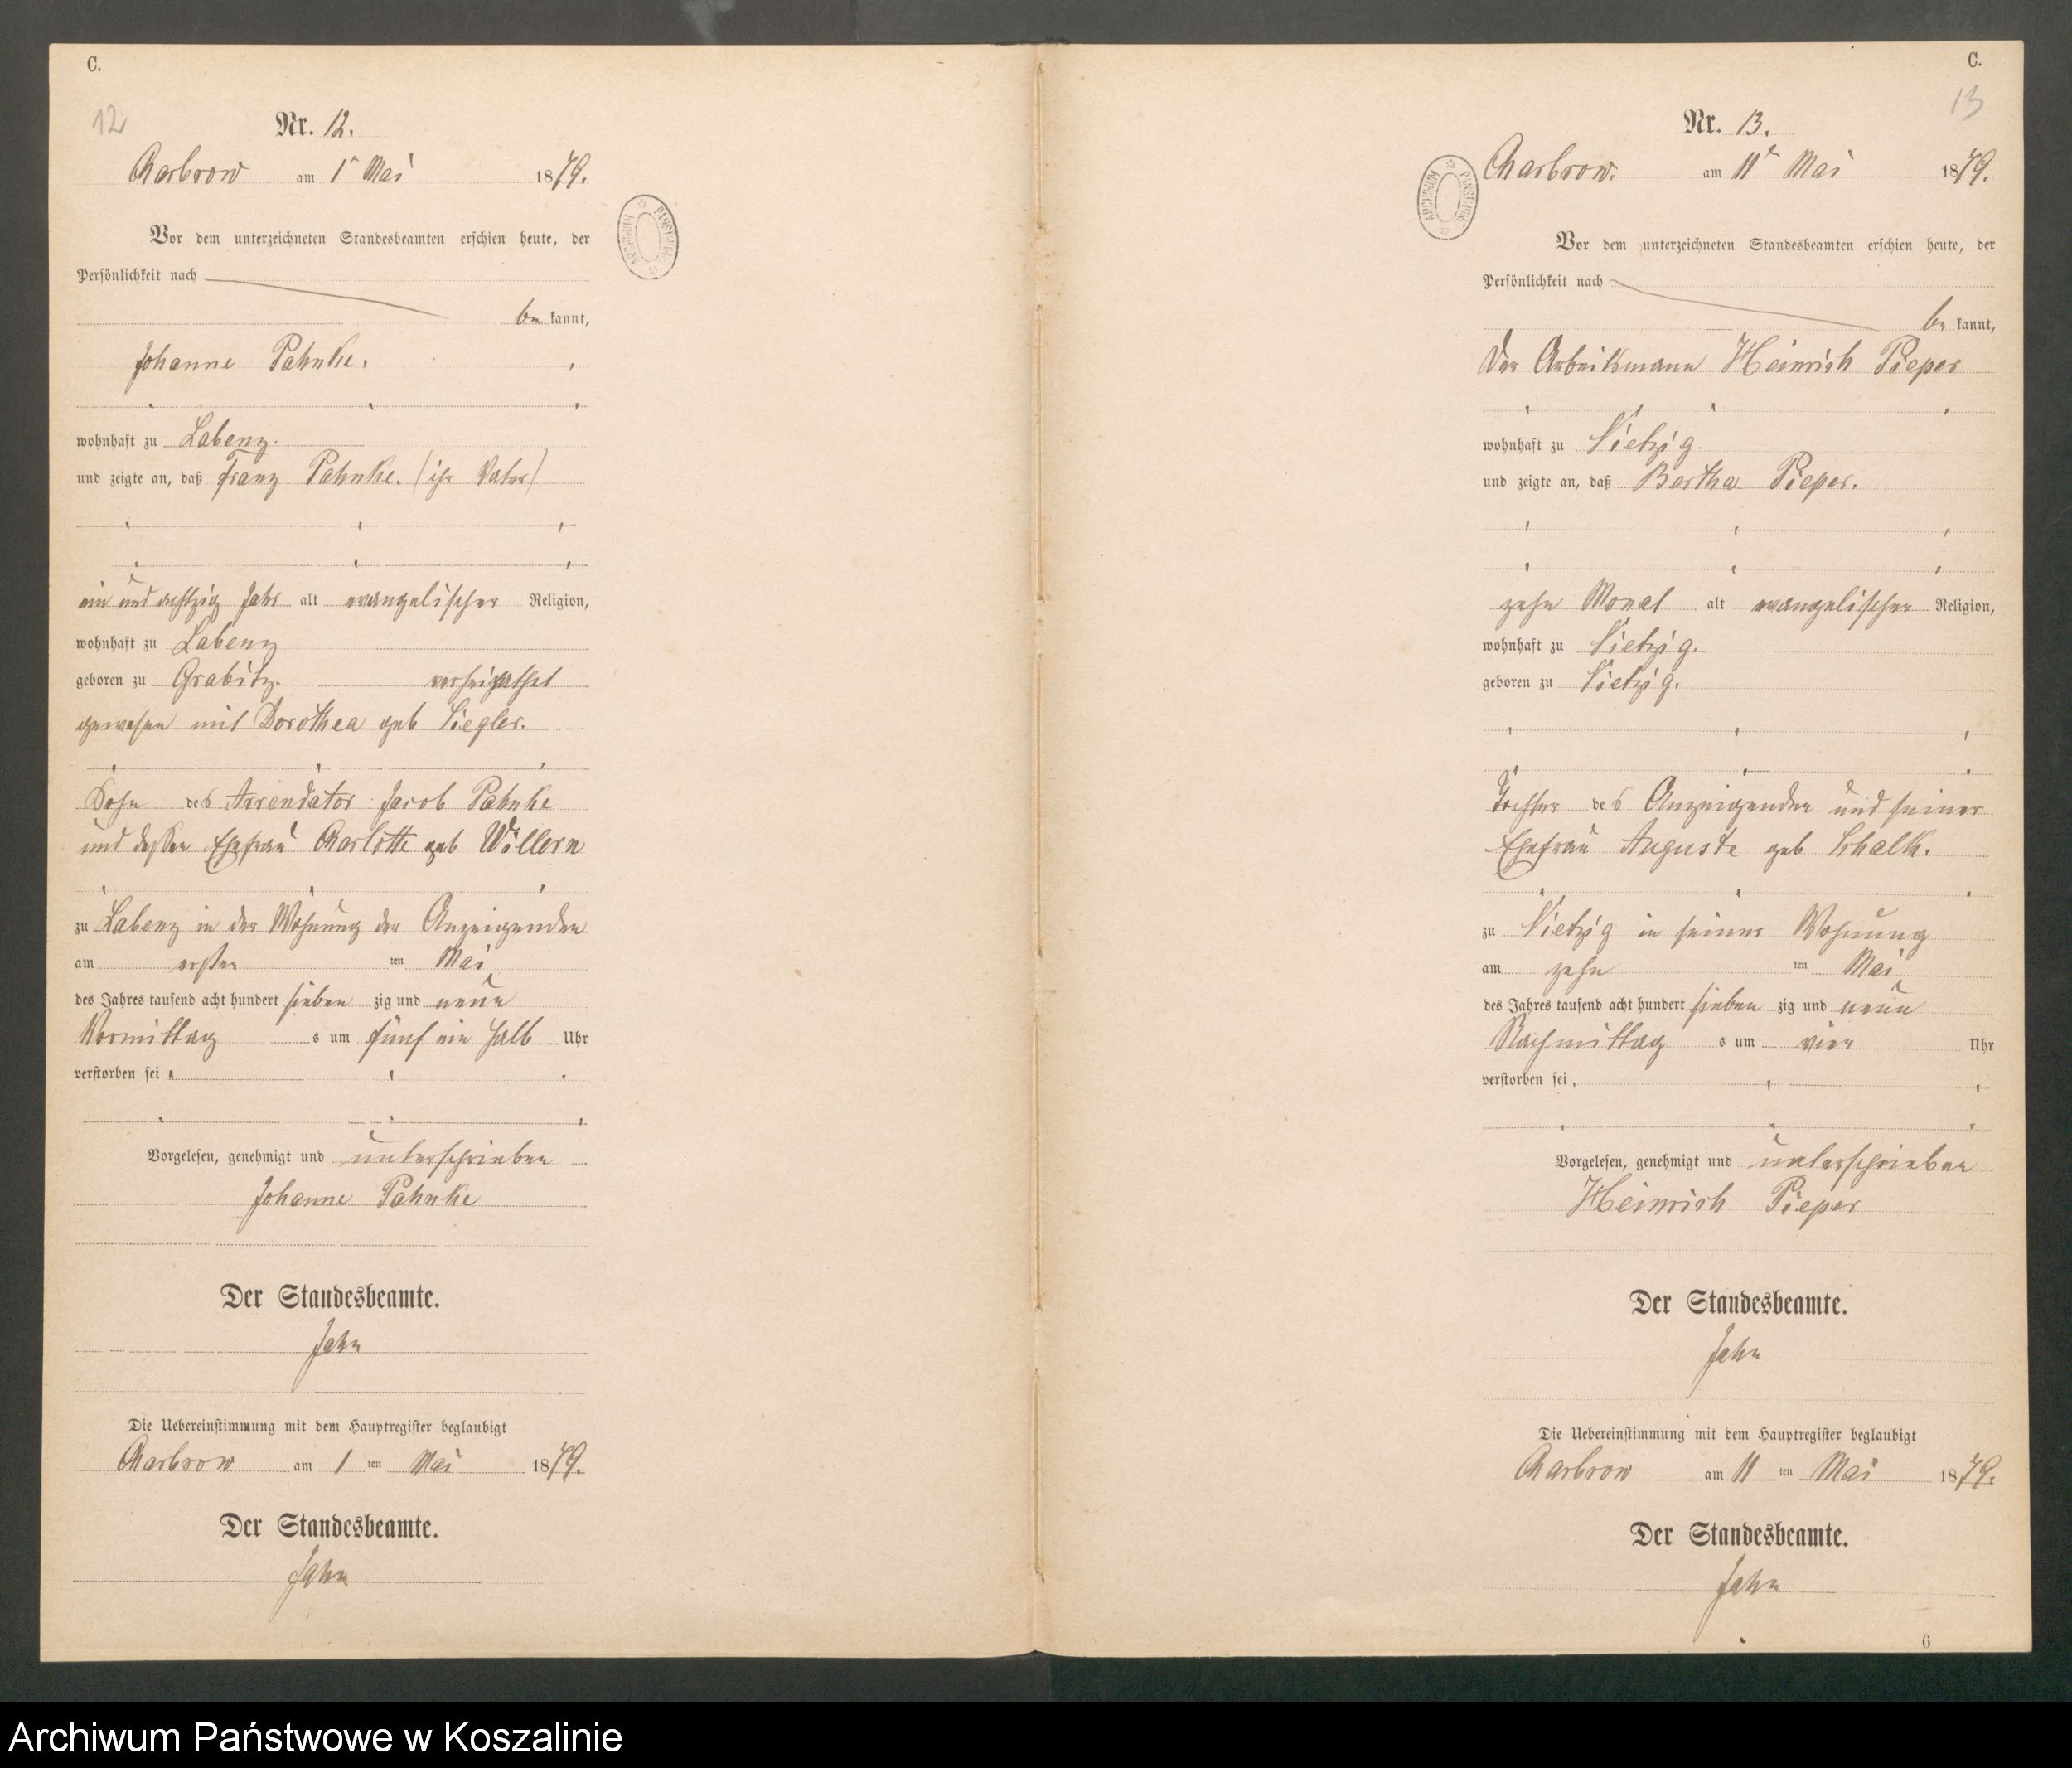 C.
12
Nr. 12.
Charbrow am 1t Mai 1879.
Vor dem unterzeichneten Standesbeamten erschien heute, der
Persönlichkeit nach
be kannt,
Johanne Pahnke,
wohnhaft zu Labenz.
und zeigte an, daß Franz Pahnke. (ihr Vater)
ein und achtzig Jahr alt evangelischer Religion,
wohnhaft zu Labenz
geboren zu Grabitz. verheirathet
gewesen mit Dorothea geb Siegler.
Sohn des Arrendator Jacob Pahnke
und dessen Ehefrau Charlotte geb Wöllern
zu Labenz in der Wohnung der Anzeigenden
am ersten ten Mai
des Jahres tausend acht hundert sieben zig und neun
Vormittag s um fünf ein halb Uhr
verstorben sei
Vorgelesen, genehmigt und unterschrieben
Johanne Pahnke
Der Standesbeamte.
Jahn
Die Uebereinstimmung mit dem Hauptregister beglaubigt
Charbrow am 1 ten Mai 1879.
Der Standesbeamte.
Jahn
C.
13
Nr. 13.
ARCHIWUM PAŃSTWOWE
Charbrow. am 11t Mai 1879.
Vor dem unterzeichneten Standesbeamten erschien heute, der
Persönlichkeit nach
be kannt,
Der Arbeitsmann Heinrich Pieper
wohnhaft zu Vietzig.
und zeigte an, daß Bertha Pieper.
zehn Monat alt evangelischer Religion,
wohnhaft zu Vietzig.
geboren zu Vietzig.
Tochter des Anzeigenden und seiner
Ehefrau Auguste geb Schalk.
zu Vietzig in seiner Wohnung
am zehn ten Mai
des Jahres tausend acht hundert sieben zig und neun
Nachmittag s um vier Uhr
verstorben sei,
Vorgelesen, genehmigt und unterschrieben
Heinrich Pieper
Der Standesbeamte.
Jahn
Die Uebereinstimmung mit dem Hauptregister beglaubigt
Charbrow am 11 ten Mai 1879.
Der Standesbeamte.
Jahn
6
Archiwum Państwowe w Koszalinie